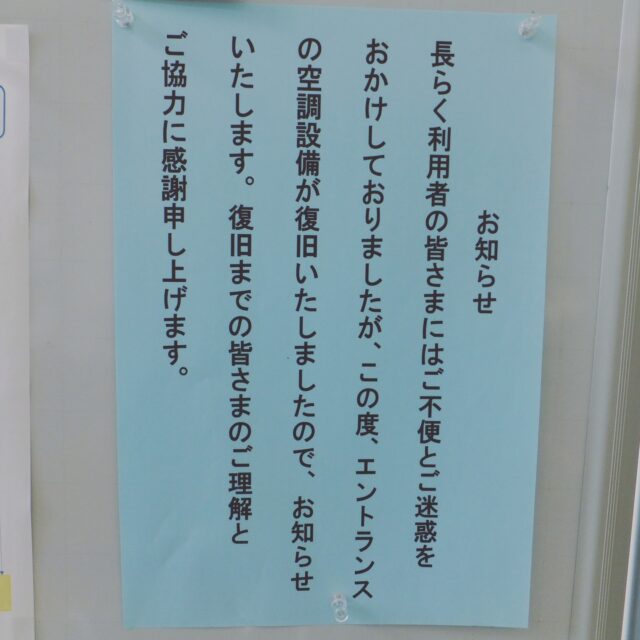 お知らせ
長らく利用者の皆さまにはご不便とご迷惑を
おかけしておりましたが、この度、エントランス
の空調設備が復旧いたしましたので、お知らせ
いたします。復旧までの皆さまのご理解と
ご協力に感謝申し上げます。